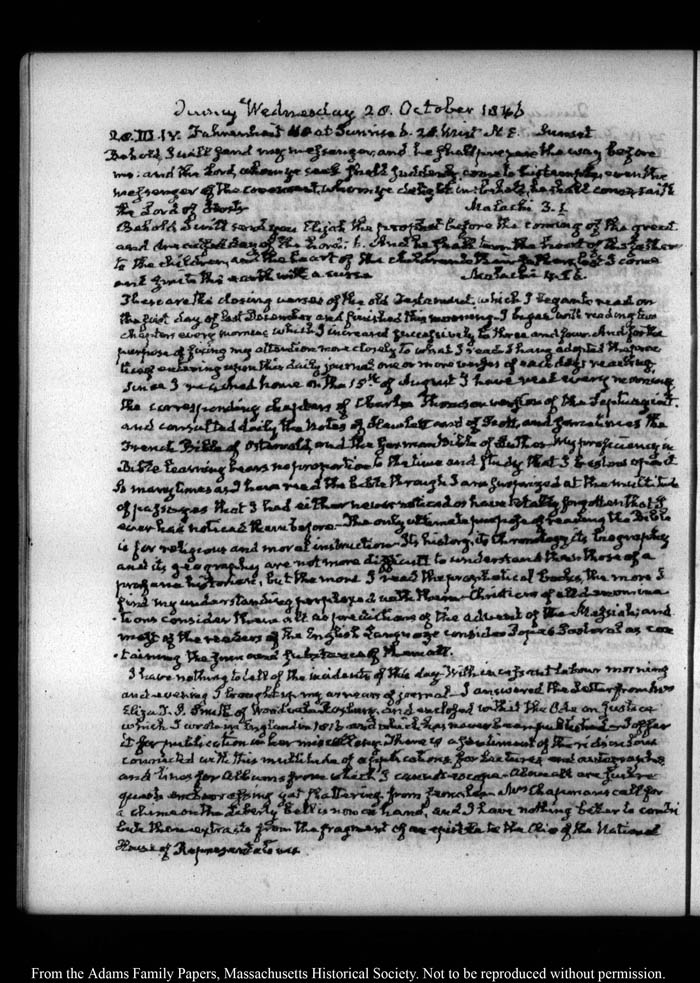 Quincy Wednesday 28. October 1846
28. III. IV. Fahrenheit at Sunrise 6. 28. Wind N E. Sunset
Behold, I will send my messenger, and he shall prepare the way before
me: and the Lord, whom ye seek shall suddenly come to his temple, even the
messenger of the covenant, whom ye delight in: behold, he shall come, saith
the Lord of Hosts Malachi 3. 1.
Behold I will send you Elijah the prophet before the coming of the great
and dreadful day of the Lord: 6. And he shall turn the heart of the fathers
to the children, and the heart of the children to their fathers, lest I come
and smite the earth with a curse Malachi 4.
These are the closing verses of the old Testament, which I began to read on
the first day of last December and finished this morning. I began with reading two
chapters every morning which I increased successively to three and four. And for the
purpose of fixing my attention more closely to what I read I have adopted the prac
tice of entering upon this daily journal one or more verses of each day's reading.
Since I reached home on the 15th of August I have read every morning
the corresponding chapters of Charles Thomson version of the Septuagint.
and consulted daily the Notes of Hewlett and of Scott, and sometimes the
French Bible of Ostervald, and the German Bible of Luther. My proficiency in
Bible learning bears no proportion to the time and study that I bestow upon it
So many times as I have read the bible through I am surprized at the multitude
of passages that I had either never noticed or have totally forgotten that I
ever had noticed them before. The only ultimate purpose of reading the Bible
is for religious and moral instruction. Its history, its chronology, its biography
and its geography are not more difficult to understand than those of a
profane historian, but the more I read the prophetical books, the more I
find my understanding perplexed with them. Christians of all denomina
tions consider them all as predictions of the advent of the Messiah; and
most of the readers of the English Language consider Pope's Pastoral as con
taining the sum and substance of them all.
I have nothing to tell of the incidents of this day. With incessant labour morning
and evening I brought up my arrears of journal. I answered the Letter from Mrs
Eliza of Roxbury, and enclosed with it the Ode on Justice
which I wrote in England in 1816 and which has never been published. I offer
it for publication in her miscellany. There is a sentiment of the ridiculous
connected with this multitude of applications for Lectures and autographs
and lines for Albums from which I cannot escape. Above all are
quests embarrassing yet flattering, from females. Mrs Chapman's call for
a chime on the Liberty Bell is now at hand, and I have nothing better to contri
bute than extracts from the fragment of an epistle to the Clio of the National
House of Representatives.
From the Adams Family Papers, Massachusetts Historical Society. Not to be reproduced without permission.